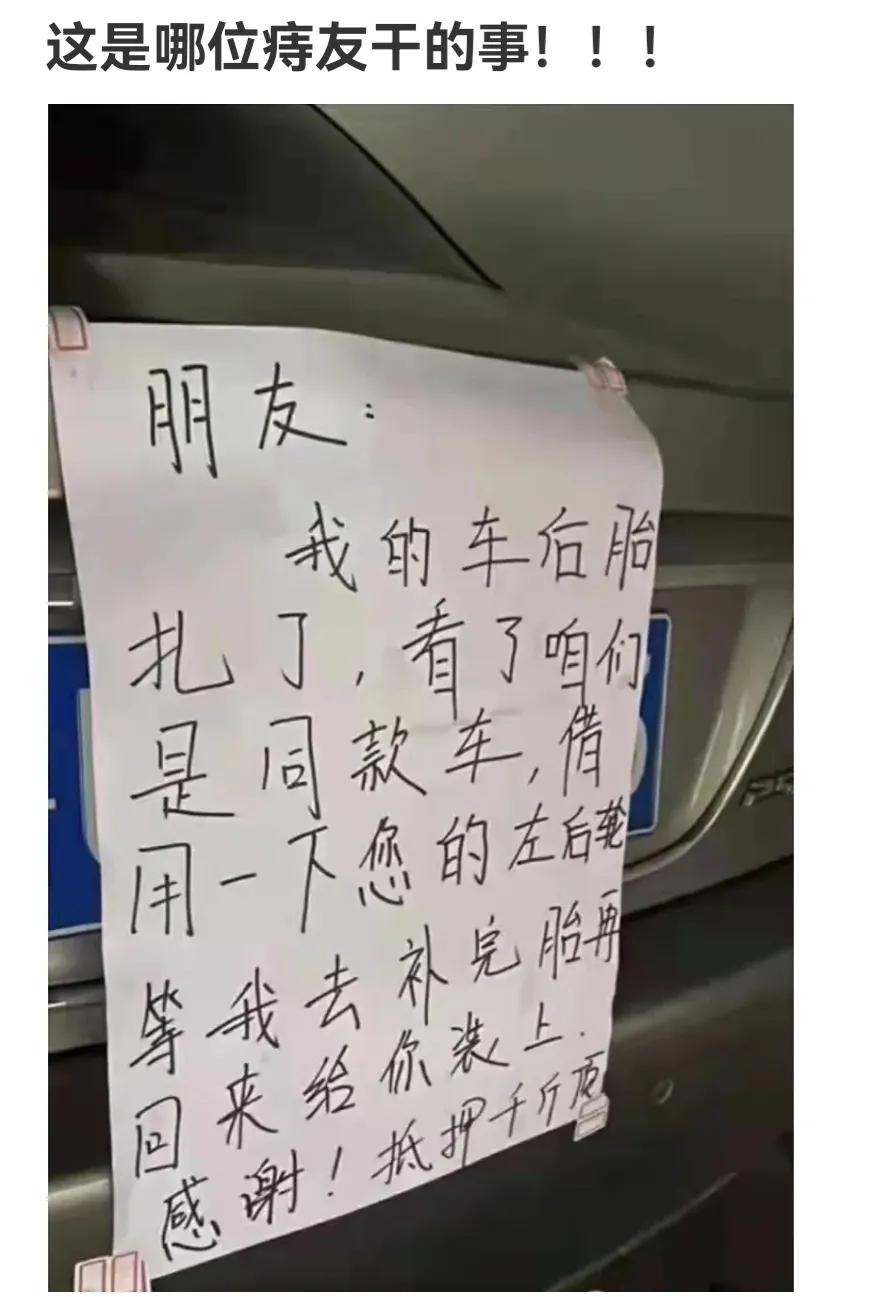 这是哪位痔友干的事！！！
朋友：
我的车后胎
扎了,看了咱们
是同款车,借
用一下您的左后轮
等我去补完胎再
回来给你装上.
感谢！抵押千斤顶